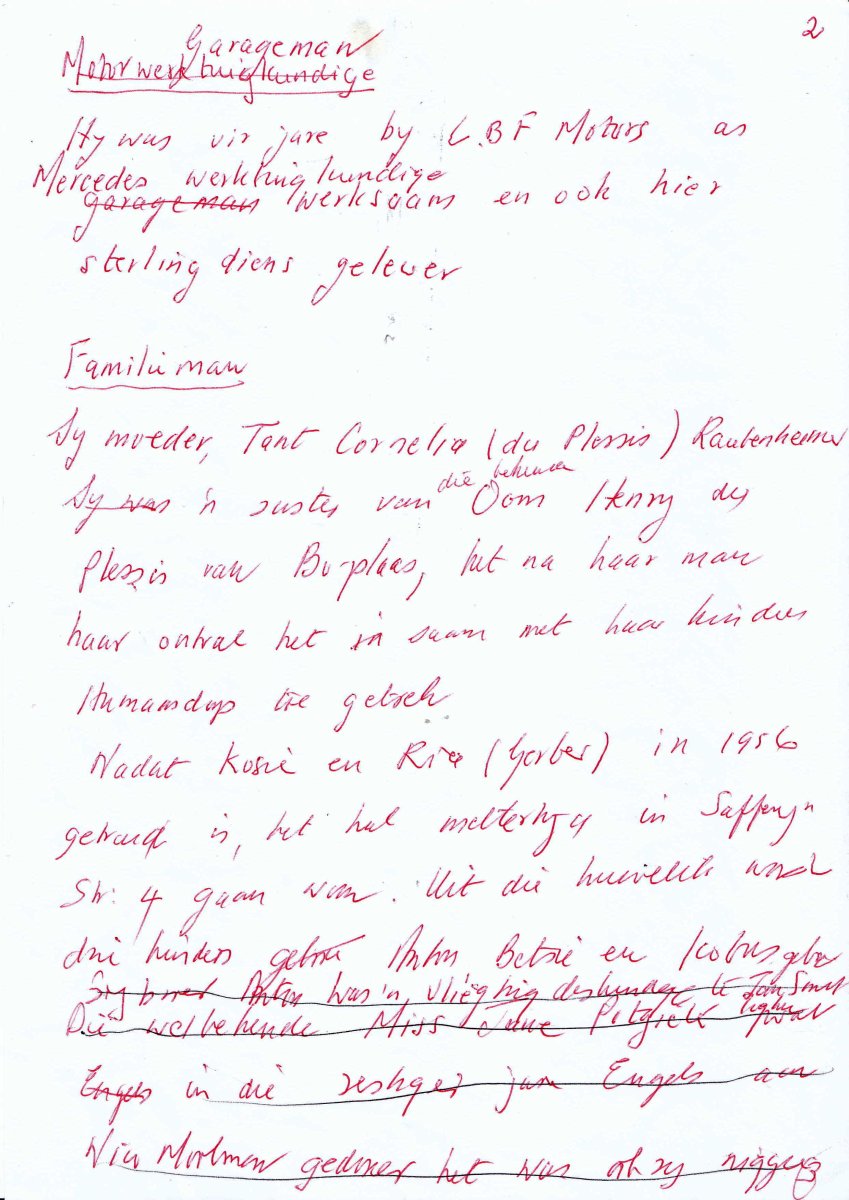 2
Garageman
Motorwerktuigkundige
Hy was vir jare by L.B.F Motors as
Mercedes werktuigkundige
garageman werksaam en ook hier
sterling diens gelewer
Familie man
Sy moeder, Tant Cornelia (du Plessis) Rautenheimer
die bekende
Sy was 'n suster van Oom Henry du
Plessis van Bo-plaas, het na haar man
haar ontval het in saam met haar kinders
Humansdorp toe getrek
Nadat Kosie en Ria (Gerber) in 1956
getroud is, het hul in Saffryn
Str. 4 gaan woon. Uit die huwelik word
drie kinders gebore Anton Betsie en Kobus gebore
Sy broer Anton was 'n vliegtuig deskundige te Jan Smuts
Die welbekende Miss June wat
Engels in die sestiger jare Engels aan
gedoseer het was ook sy niggie
3